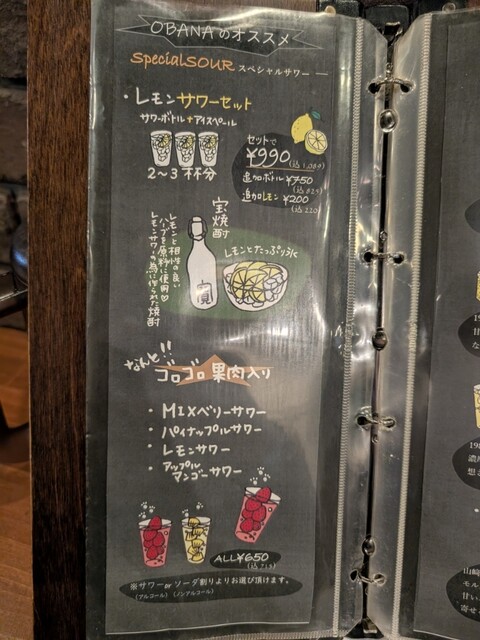 OBANAのオススメ
SpecialSOUR スペシャルサワー
・レモンサワーセット
サワーボトル+アイスペール
2〜3杯分
セットで
¥990
(込1,089)
追加ボトル¥750
(込825)
追加レモン¥200
(込220)
宝焼酎
レモンと相性の良い
ハーブを原料に使用♡
レモンサワーの為に作られた焼酎
寳
レモンとたっぷり氷
なんと!!
ゴロゴロ果肉入り
・MIXベリーサワー
・パイナップルサワー
・レモンサワー
・アップル
マンゴーサワー
ALL¥650
(込715)
※サワーorソーダ割りよりお選び頂けます。
(アルコール) (ノンアルコール)